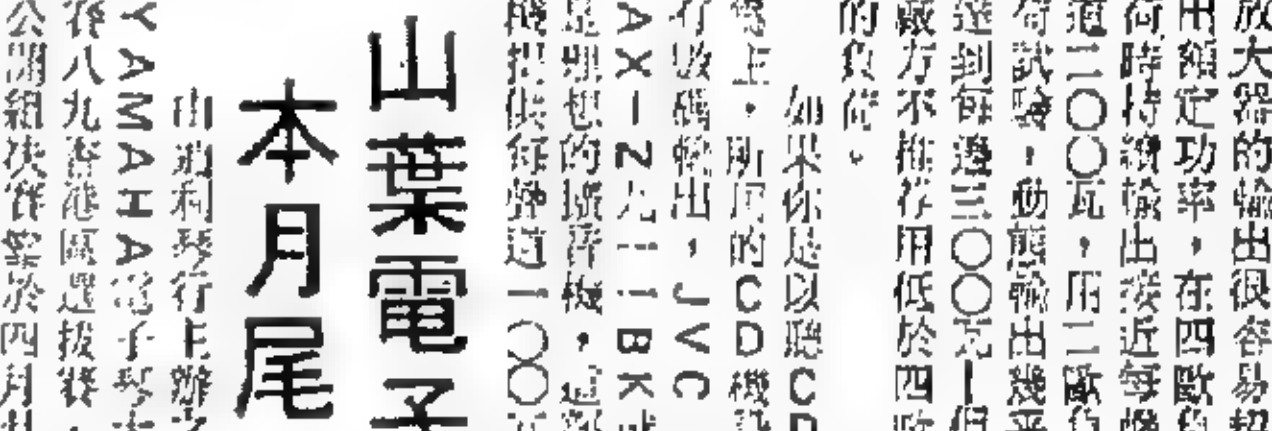 放大器的輸出很容易超
出額定功率，在四歐負
荷時持續輸出接近每聲
道二〇〇瓦，用二歐負
荷試驗，動態輸出幾乎
達到每邊三〇〇瓦—但
廠方不推荐用低於四歐
的負荷。
如果你是以聽CD
爲主，所用的CD機
有數碼輸出，JVC
AX－Z九一一BK
是理想的擴音機，這部
機提供每聲道一〇〇瓦
山葉電子
本月尾
由通利琴行主辦之
YAMAHA電子琴大
賽八九香港區選拔賽，
公開組決賽 於四月